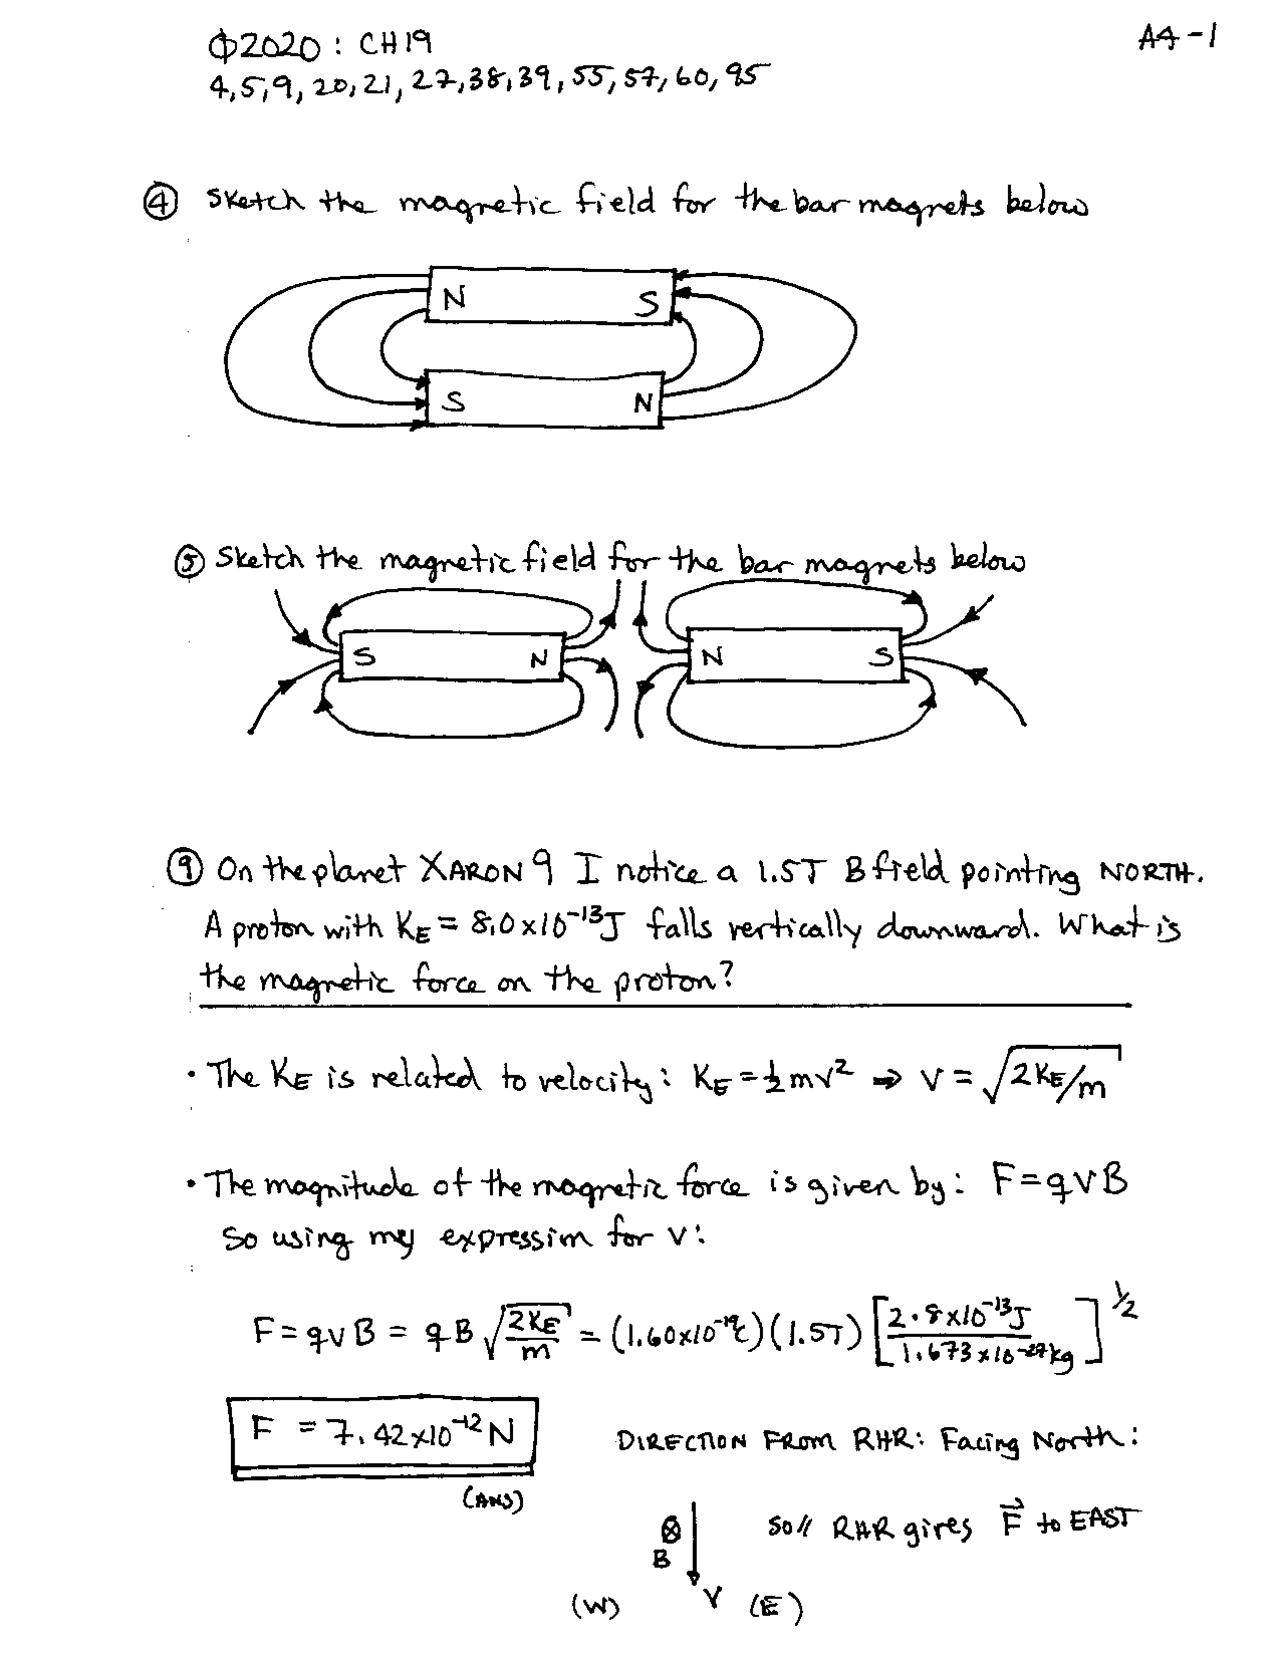 Φ2020 : CH19
A4-1
4,5,9, 20,21, 27,38,39, 55, 57, 60, 95
④ Sketch the magnetic field for the bar magnets below
N S
S N
⑤ Sketch the magnetic field for the bar magnets below
S N N S
⑨ On the planet XARON 9 I notice a 1.5T B field pointing NORTH.
A proton with KE = 8.0x10⁻¹³J falls vertically downward. What is
the magnetic force on the proton?
• The KE is related to velocity: KE = ½mv² ⇒ v = √(2KE/m)
• The magnitude of the magnetic force is given by: F=qvB
So using my expression for v:
F = qvB = qB√(2KE/m) = (1.60x10⁻¹⁹C)(1.5T)[2·8x10⁻¹³J / 1.673x10⁻²⁷kg]^½
F = 7.42x10⁻¹²N
DIRECTION FROM RHR: Facing North:
(ANS)
⊗ So// RHR gives F⃗ to EAST
B
(W) V (E)